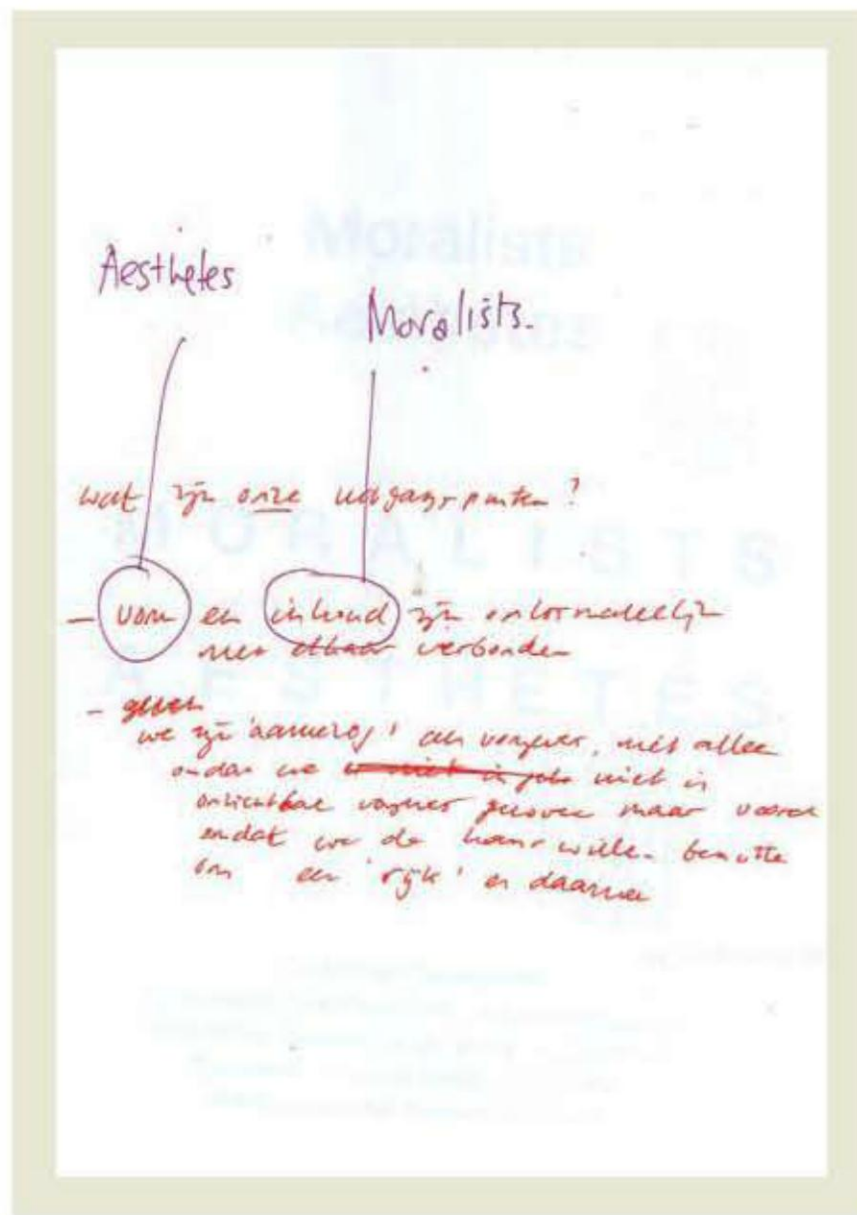 Aesthetes
Moralists.
wat zijn onze uitgangspunten?
- vorm en inhoud zijn onlosmakelijk
met elkaar verbonden
- geven
we zijn 'aanwezig' als vormgever, niet alleen
omdat we niet in
onzichtbare vormgever geloven maar vooral
omdat we de kans willen benutten
om een 'rijk' en daarmee
Moralists
Aesthetes
MORALISTS
AESTHETES